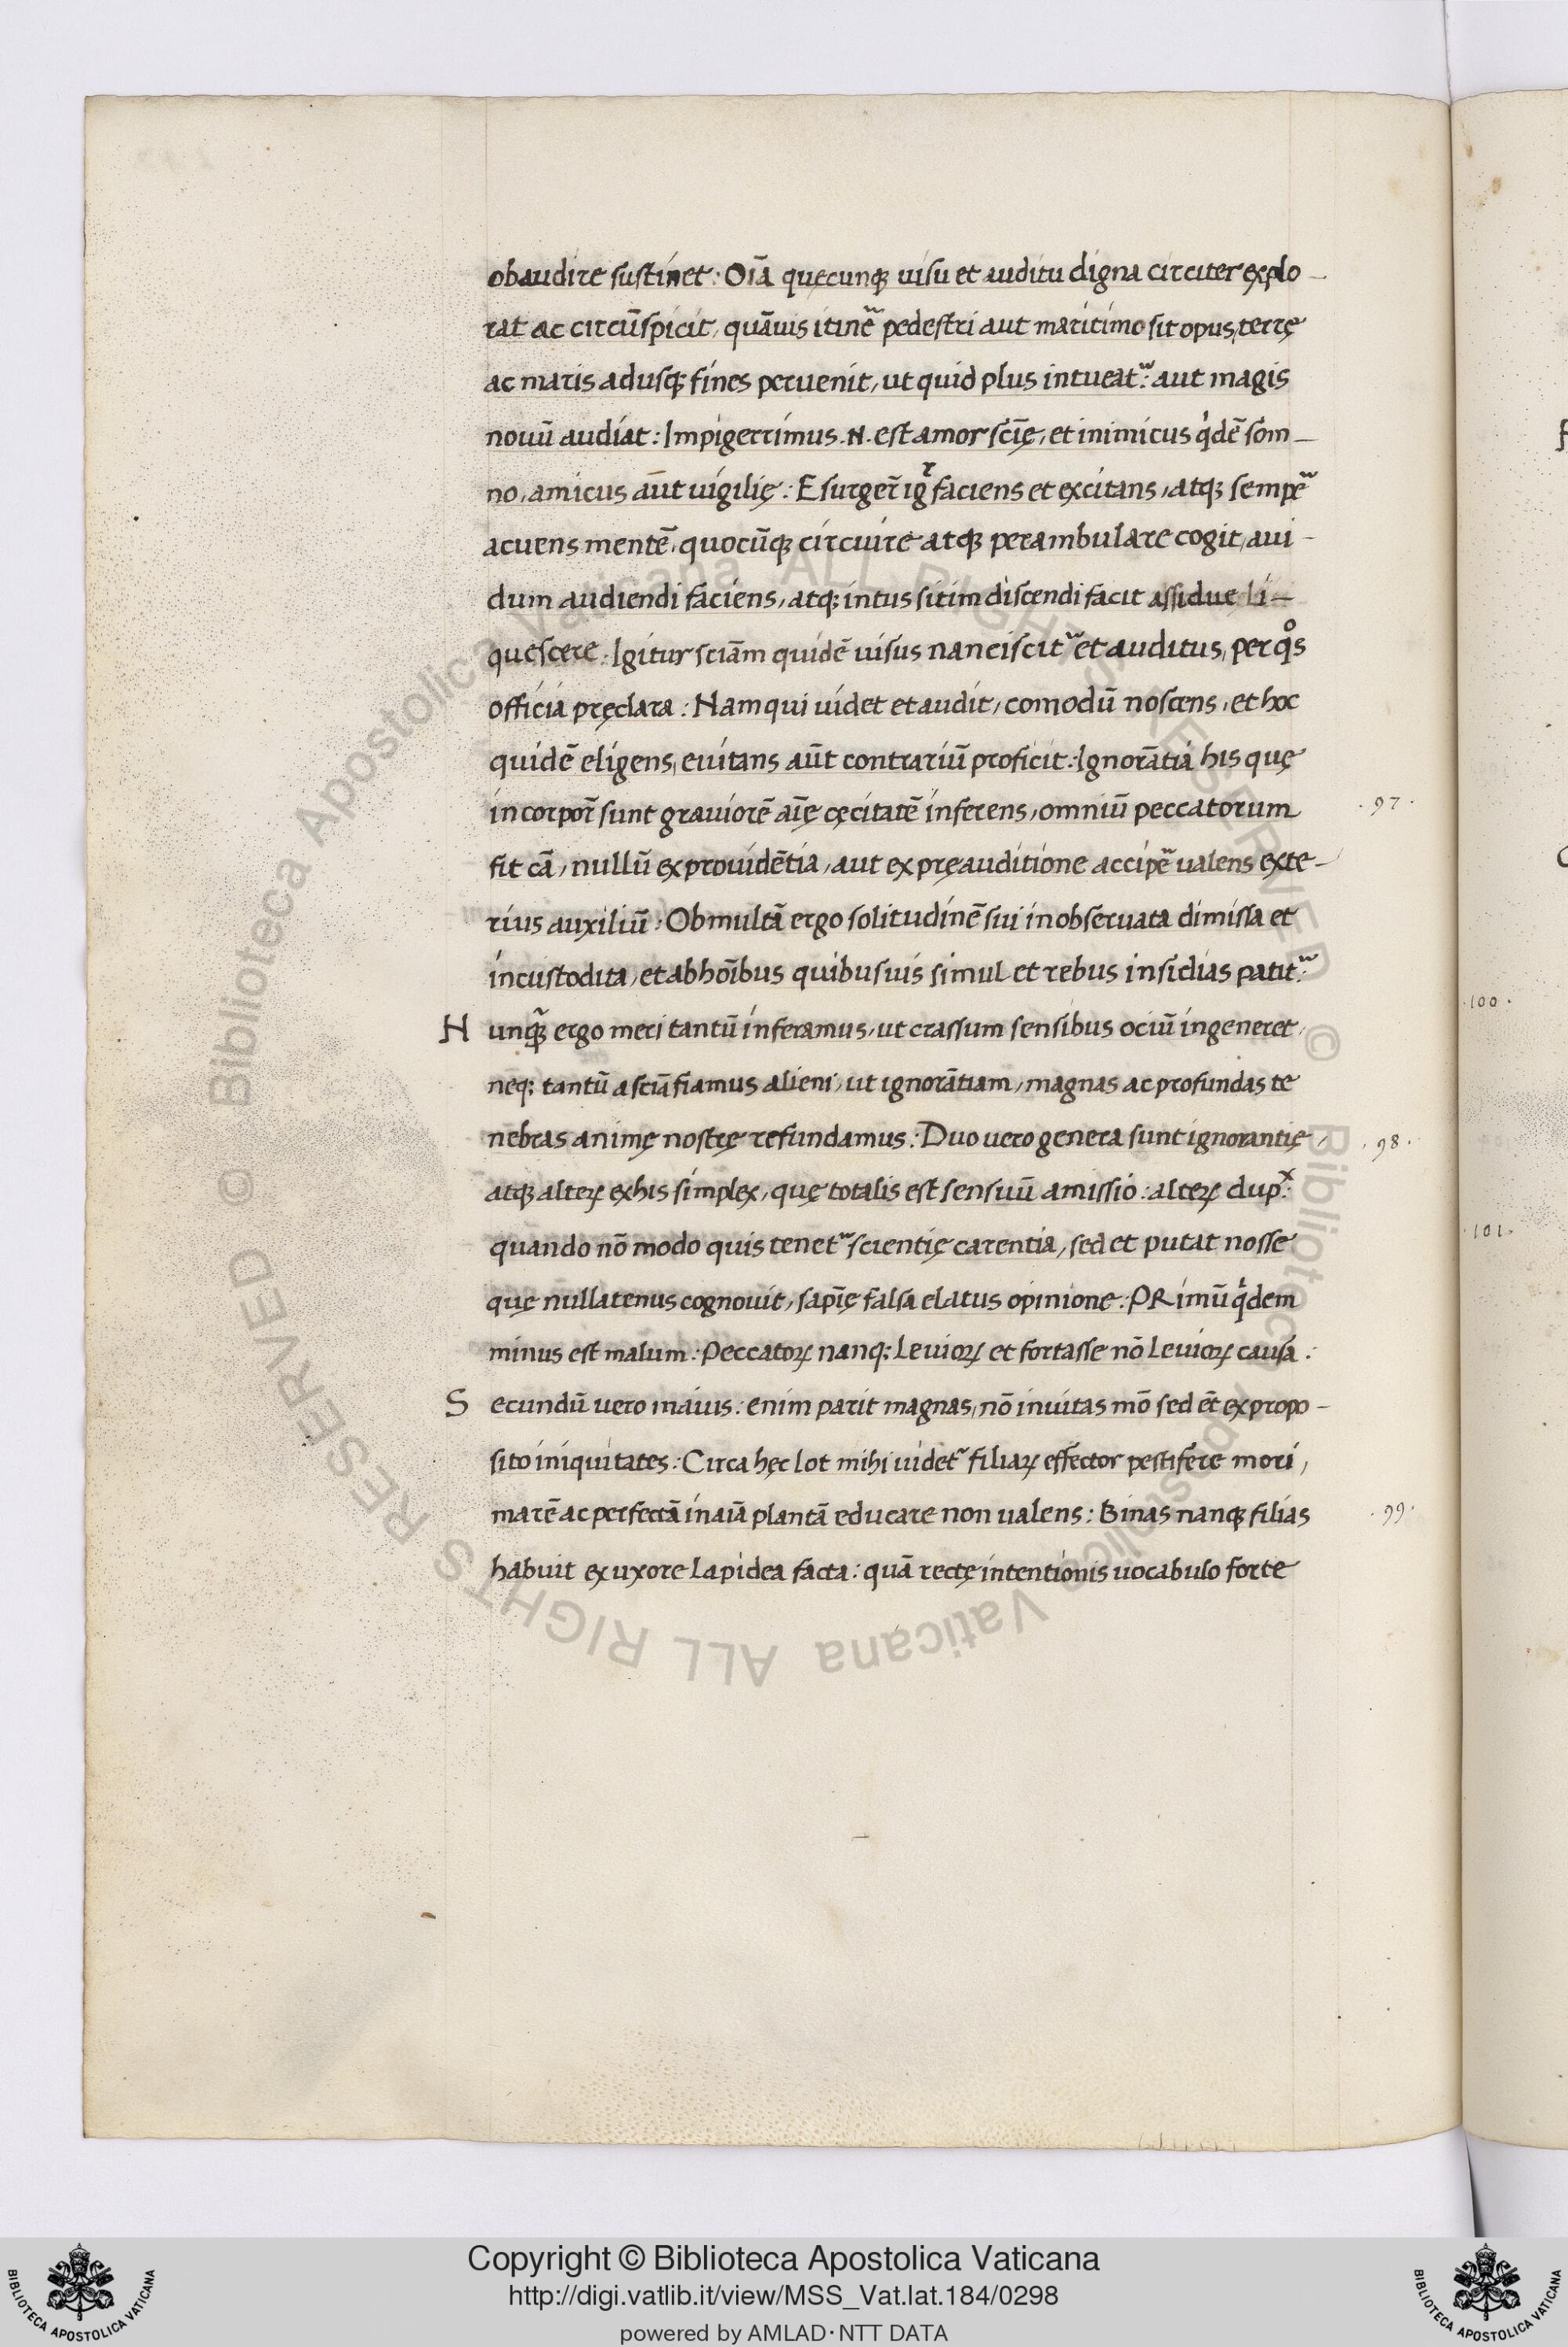 obaudire sustinet : Oīa quęcunqꝫ uisu et auditu digna circiter explo–
rat ac circūspicit, quāuis itinē pedestri aut maritimo sit opus, terrę
ac maris adusqꝫ fines peruenit, ut quid plus intueat᷑ : aut magis
nouū audiat : Impigerrimus .N. est amor scīę, et inimicus qͥdē som–
no, amicus aūt uigilię : Esurger̄ igͬ faciens et excitans, atqꝫ sempē
acuens mentē, quocūqꝫ circuire atqꝫ perambulare cogit, aui–
dum audiendi faciens, atqꝫ intus sitim discendi facit assidue li–
quescere : Igitur sciām quidē uisus nanciscit᷑ et auditus, per qͦs
officia pręclara : Nam qui uidet et audit, comodū noscens, et hoc
quidē eligens, euitans aūt contrariū proficit : Ignorātia his quę
in corpor̄ sunt grauiorē aīę cęcitatē inferens, omniū peccatorum
.97.
fit cā, nullū ex prouidētia, aut ex pręauditione accipē ualens exte–
rius auxiliū : Ob multā ergo solitudinē sui inobseruata dimissa et
incustodita, et ab hoībus quibusuis simul et rebus insidias patit᷑ :
Nunqꝫ̄ ergo meri tantū inferamus, ut crassum sensibus ociū ingeneret,
neqꝫ tantū a sciā fiamus alieni, ut ignorātiam, magnas ac profundas te
nebras animę nostrę refundamus : Duo uero genera sunt ignorantię,
.98.
atqꝫ alterꝝ ex his simplex, quę totalis est sensuū amissio : alterꝝ dupˣ :
quando nō modo quis tenet᷑ scientię carentia, sed et putat nosse
quę nullatenus cognouit, sapīę falsa elatus opinione : PRimū qͥdem
minus est malum : Peccatorꝝ nanqꝫ leuiorꝝ et fortasse nō leuiorꝝ causa :
Secundū uero maius : enim parit magnas, nō inuitas mō sed et̄ ex propo–
sito iniquitates : Circa hęc lot mihi uidet᷑ filiarꝝ effector pestifere mori,
marē ac perfectā in aīa plantā educare non ualens : Binas nanqꝫ filias
.99.
habuit ex uxore lapidea facta : quā rectę intentionis uocabulo forte
.100.
.101.
© Biblioteca Apostolica Vaticana ALL RIGHTS RESERVED © Biblioteca Apostolica Vaticana ALL RIGHTS RESERVED
Copyright © Biblioteca Apostolica Vaticana
http://digi.vatlib.it/view/MSS_Vat.lat.184/0298
powered by AMLAD·NTT DATA
BIBLIOTECA APOSTOLICA VATICANA
BIBLIOTECA APOSTOLICA VATICANA